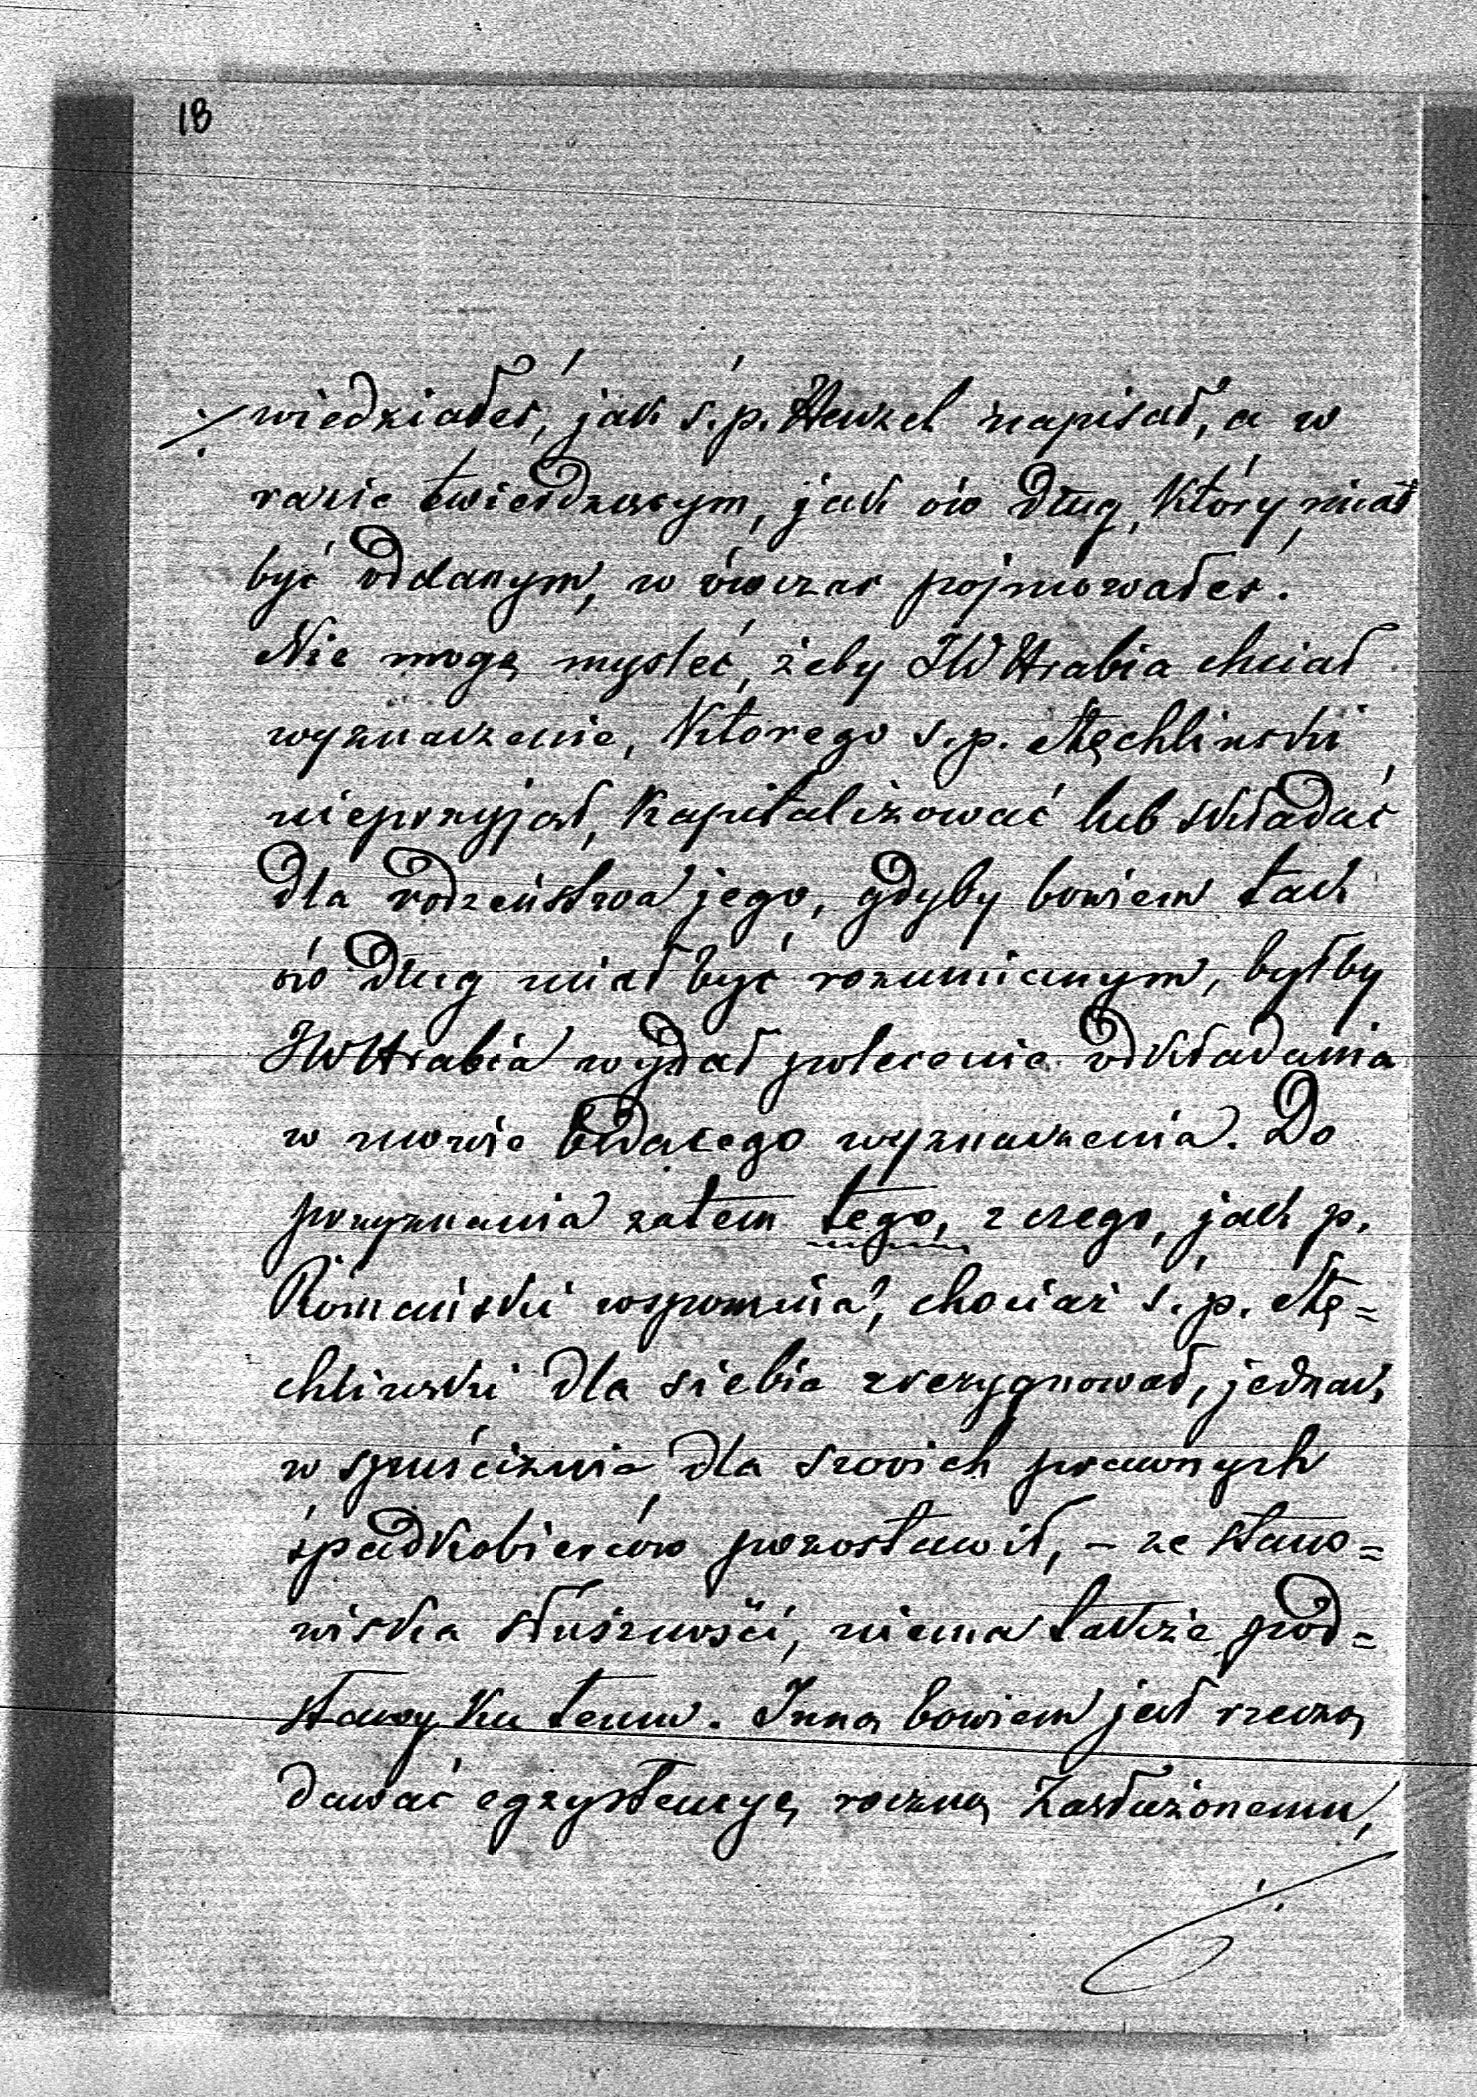 18
wiedziałeś, jak ś.p. Henzel napisał, a w
razie twierdzącym, jak ów dług, który miał
być oddanym, w ówczas pojmowałeś.
Nie mogę mysleć, żeby JW Hrabia chciał
wyznaczenie, którego s.p. Męchlinski
nieprzyjął, kapitalizować lub składać
dla rodzeństwa jego, gdyby bowiem tak
ów dług miał być rozumianym, byłby
JW Hrabia wydał polecenie odkładania
w mowie będącego wyznaczenia. Do
przyznania zatem tego, z czego, jak p.
Romański wspomina, chociaż s. p. Mę=
chlinski dla siebie zrezygnował, jednak
w spuściznie dla swoich prawnych
spadkobierców pozostawił, – ze stano=
wiska słuszności, niema także pod=
stawy ku temu. Inną bowiem jest rzeczą
dawać egzystencyę roczną zasłużonemu,